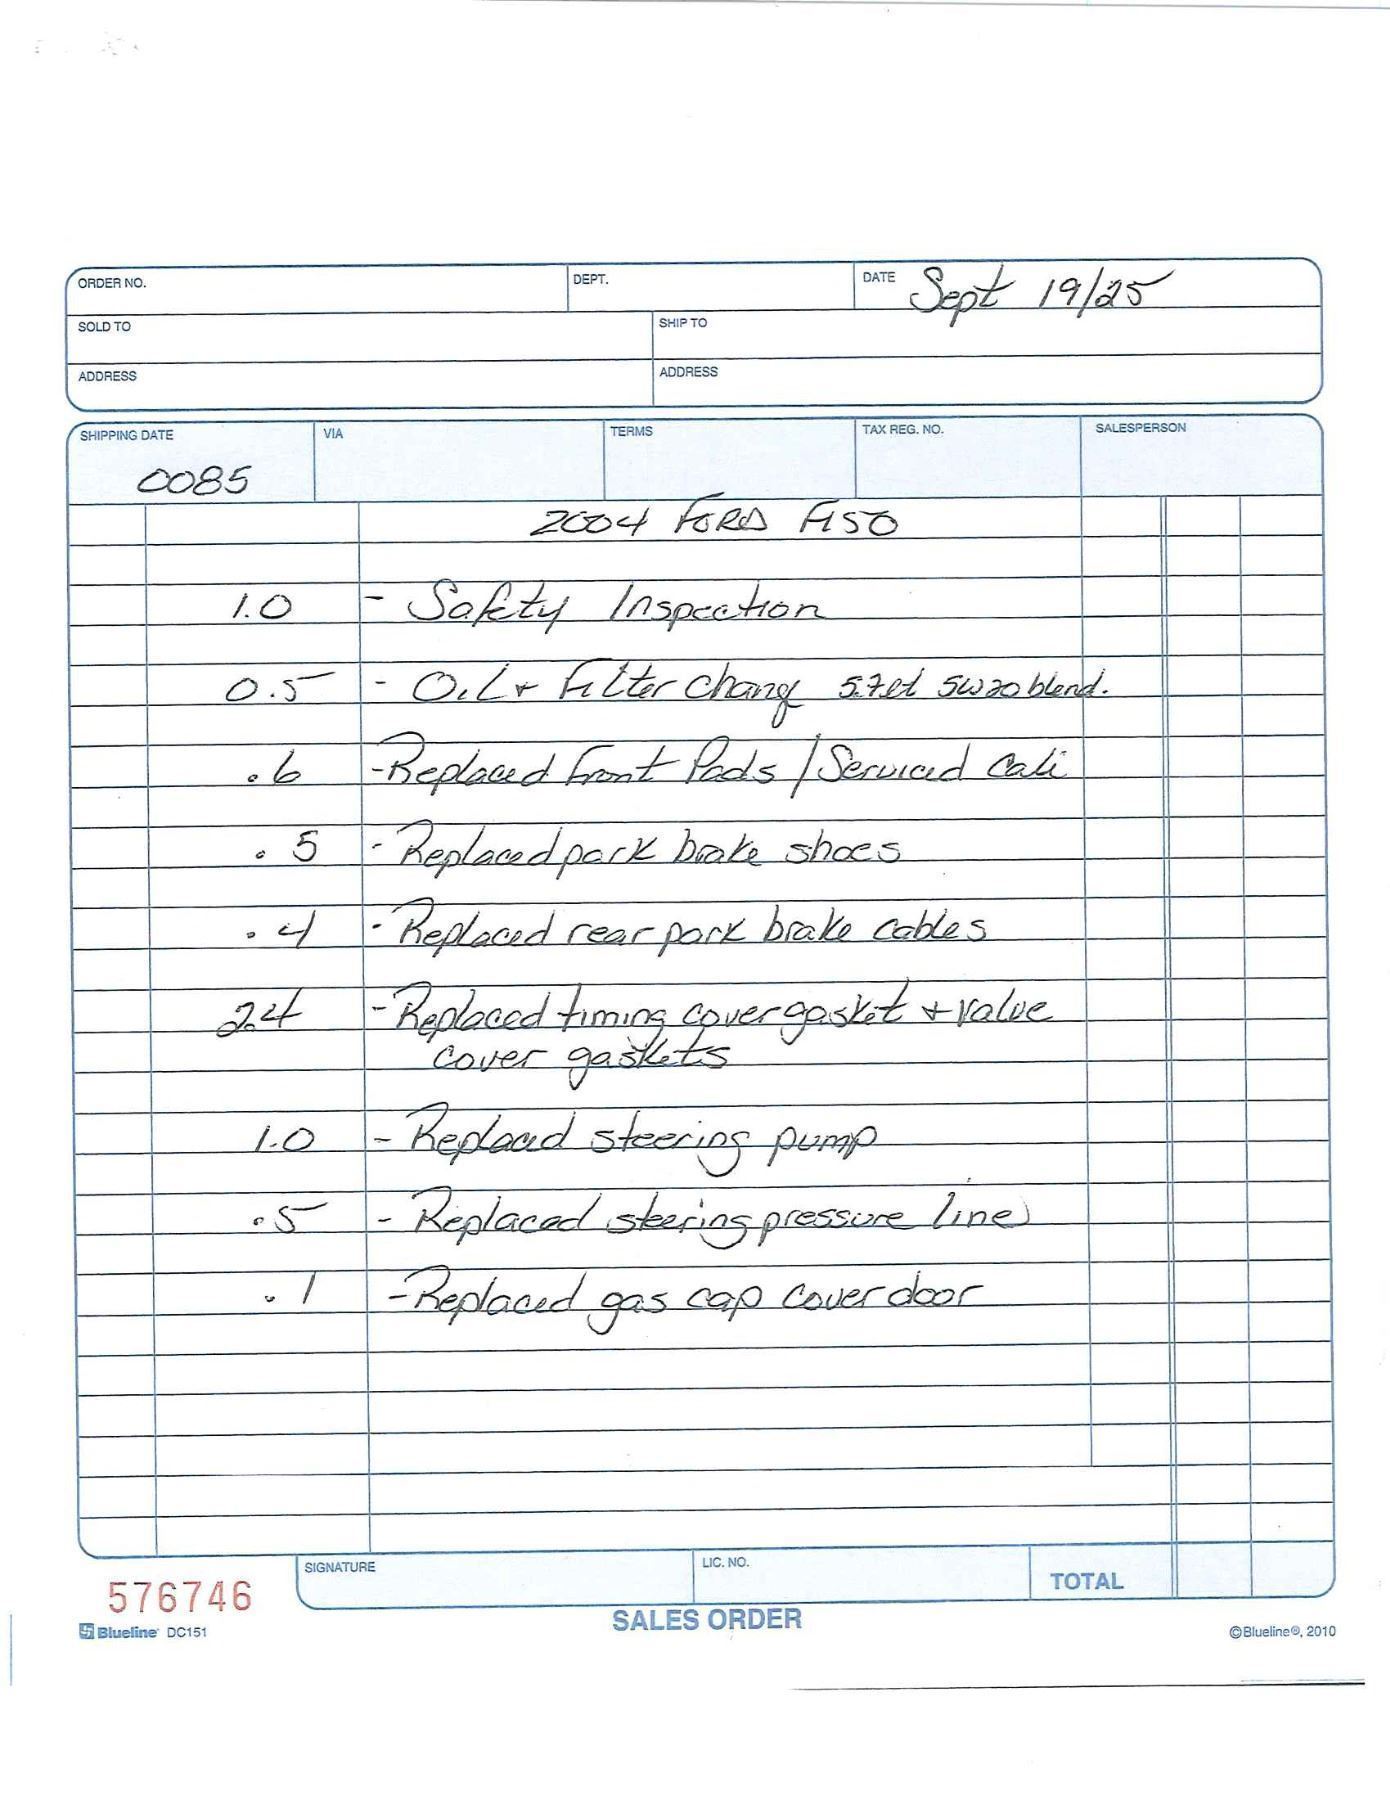 ORDER NO. DEPT. DATE Sept 19/25
SOLD TO SHIP TO
ADDRESS ADDRESS
SHIPPING DATE VIA TERMS TAX REG. NO. SALESPERSON
0085
2004 FORD F150
1.0 - Safety Inspection
0.5 - Oil + Filter Chang 5.7lt 5w20 blend.
.6 - Replaced Front Pads / Serviced Cali
.5 - Replaced park brake shoes
.4 - Replaced rear park brake cables
2.4 - Replaced timing cover gasket + valve
cover gaskets
1.0 - Replaced steering pump
.5 - Replaced steering pressure line
.1 - Replaced gas cap cover door
SIGNATURE LIC. NO. TOTAL
576746
SALES ORDER
Blueline DC151 ©Blueline®, 2010